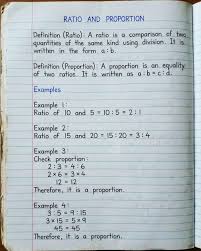 RATIO AND PROPORTION
Definition (Ratio): A ratio is a comparison of two
quantities of the same kind using division. It is
written in the form a:b.
Definition (Proportion): A proportion is an equality
of two ratios. It is written as a:b = c:d.
Examples
Example 1:
Ratio of 10 and 5 = 10:5 = 2:1
Example 2:
Ratio of 15 and 20 = 15:20 = 3:4
Example 3:
Check proportion:
2:3 = 4:6
2×6 = 3×4
12 = 12
Therefore, it is a proportion.
Example 4:
3:5 = 9:15
3×15 = 5×9
45 = 45
Therefore, it is a proportion.